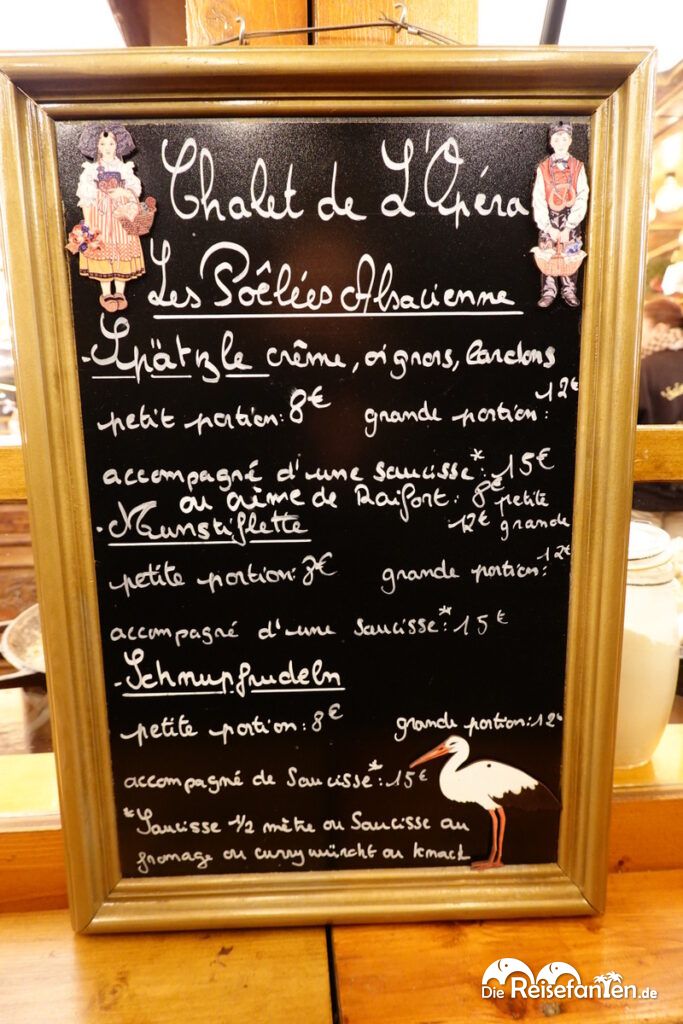 Chalet de L'Opéra
Les Poêlées Alsacienne
- Spätzle crême, oignons, lardons
petit portion: 8€ grande portion: 12€
accompagné d'une saucisse*: 15€
ou crème de Raifort: 8€ petite
12€ grande
- Munstiflette
petite portion: 8€ grande portion: 12€
accompagné d'une saucisse*: 15€
- Schnupfnudeln
petite portion: 8€ grande portion: 12€
accompagné de Saucisse*: 15€
*Saucisse 1/2 mètre ou Saucisse au
fromage ou currywürcht ou knack
Die Reisefanten.de